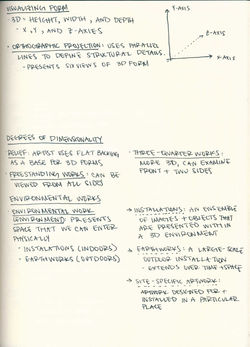 VISUALIZING FORM
· 3D = HEIGHT, WIDTH, AND DEPTH
· X, Y, AND Z-AXES
· ORTHOGRAPHIC PROJECTION: USES PARALLEL
LINES TO DEFINE STRUCTURAL DETAILS.
- PRESENTS SIX VIEWS OF 3D FORM
Y-AXIS
Z-AXIS
X-AXIS
DEGREES OF DIMENSIONALITY
RELIEF: ARTIST USES FLAT BACKING
AS A BASE FOR 3D FORMS
FREESTANDING WORKS: CAN BE
VIEWED FROM ALL SIDES
ENVIRONMENTAL WORKS
ENVIRONMENTAL WORK
(ENVIRONMENT): PRESENTS
SPACE THAT WE CAN ENTER
PHYSICALLY
· INSTALATIONS (INDOORS)
· EARTHWORKS (OUTDOORS)
· THREE-QUARTER WORKS:
MORE 3D, CAN EXAMINE
FRONT + TWO SIDES
→ INSTALLATIONS: AN ENSEMBLE
OF IMAGES + OBJECTS THAT
ARE PRESENTED WITHIN
A 3D ENVIRONMENT
→ EARTHWORKS: A LARGE-SCALE
OUTDOOR INSTALLATION
- EXTENDS OVER TIME + SPACE
→ SITE-SPECIFIC ARTWORK:
ARTWORK DESIGNED FOR +
INSTALLED IN A PARTICULAR
PLACE